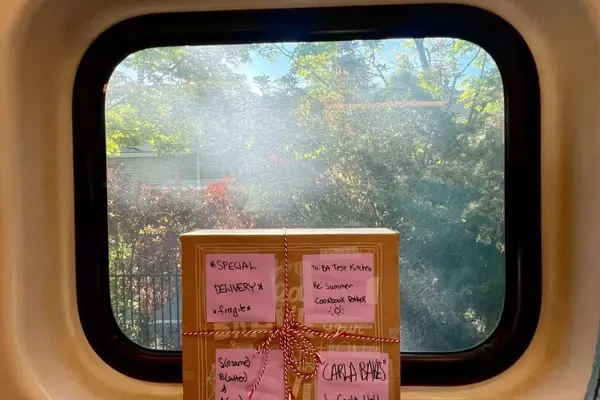 *SPECIAL
DELIVERY*
*fragile*
to: BA Test Kitchen
Re: Summer
Cookbook Potluck
S(esame)
B(utter)
&
"CARLA BAKES"
by Carla Hall